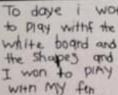 To daye i wo
to play withf the
white board and
the shapes and
I won to plAy
with MY fen